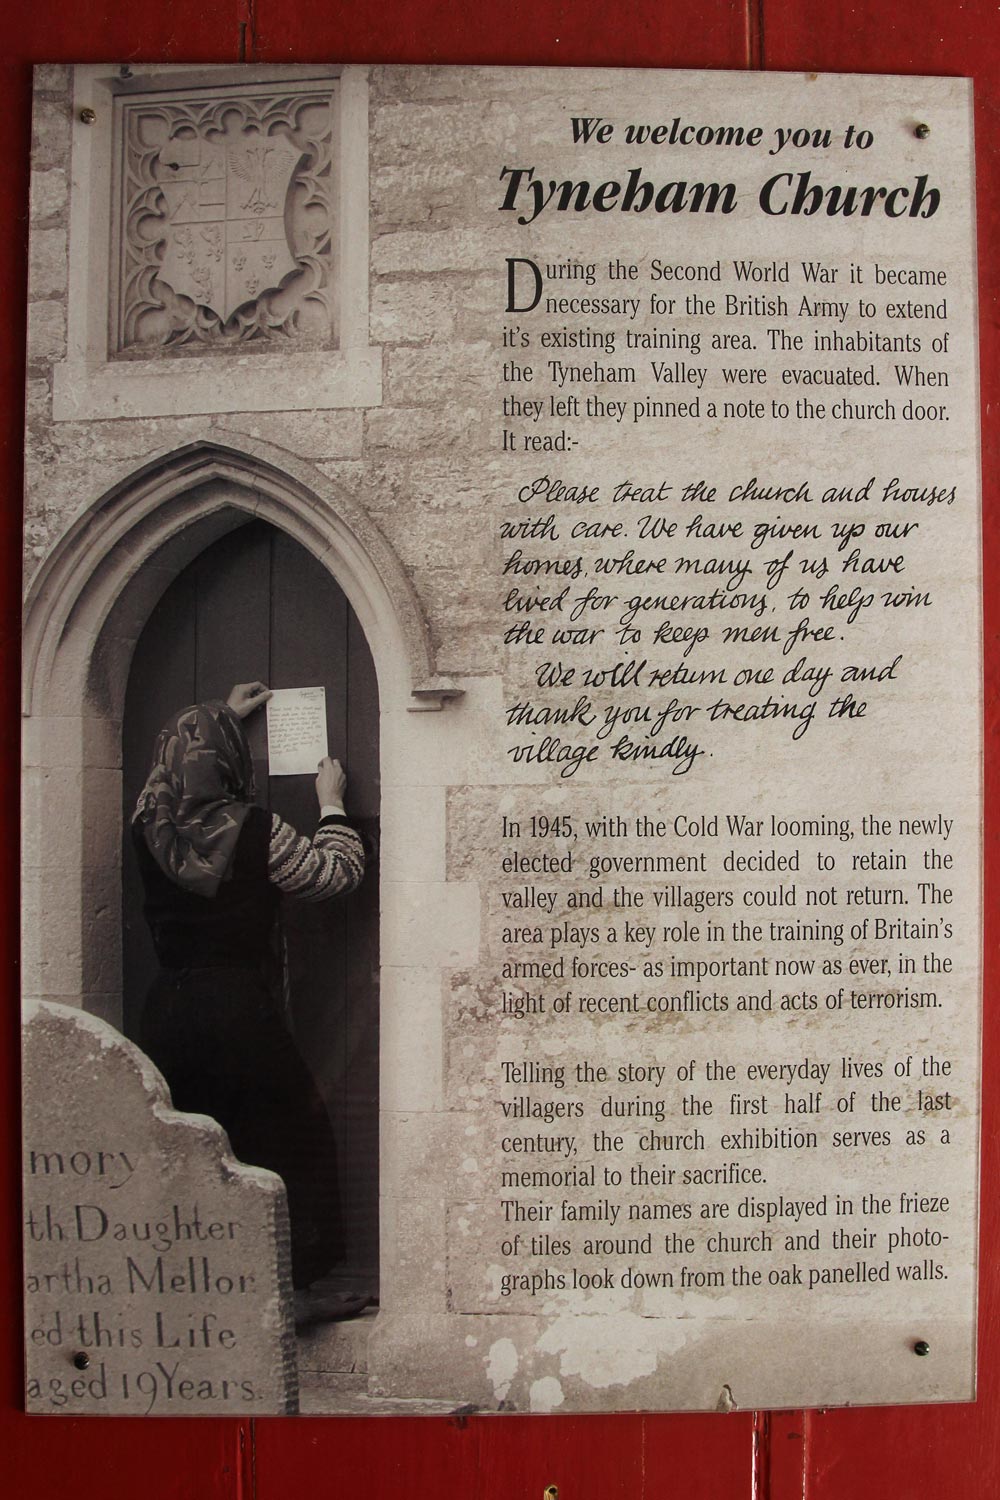 We welcome you to
Tyneham Church
During the Second World War it became
necessary for the British Army to extend
it's existing training area. The inhabitants of
the Tyneham Valley were evacuated. When
they left they pinned a note to the church door.
It read:-
Please treat the church and houses
with care. We have given up our
homes, where many of us have
lived for generations, to help win
the war to keep men free.
We will return one day and
thank you for treating the
village kindly.
In 1945, with the Cold War looming, the newly
elected government decided to retain the
valley and the villagers could not return. The
area plays a key role in the training of Britain's
armed forces- as important now as ever, in the
light of recent conflicts and acts of terrorism.
Telling the story of the everyday lives of the
villagers during the first half of the last
century, the church exhibition serves as a
memorial to their sacrifice.
Their family names are displayed in the frieze
of tiles around the church and their photo-
graphs look down from the oak panelled walls.
mory
th Daughter
artha Mellor
ed this Life
aged 19 Years.